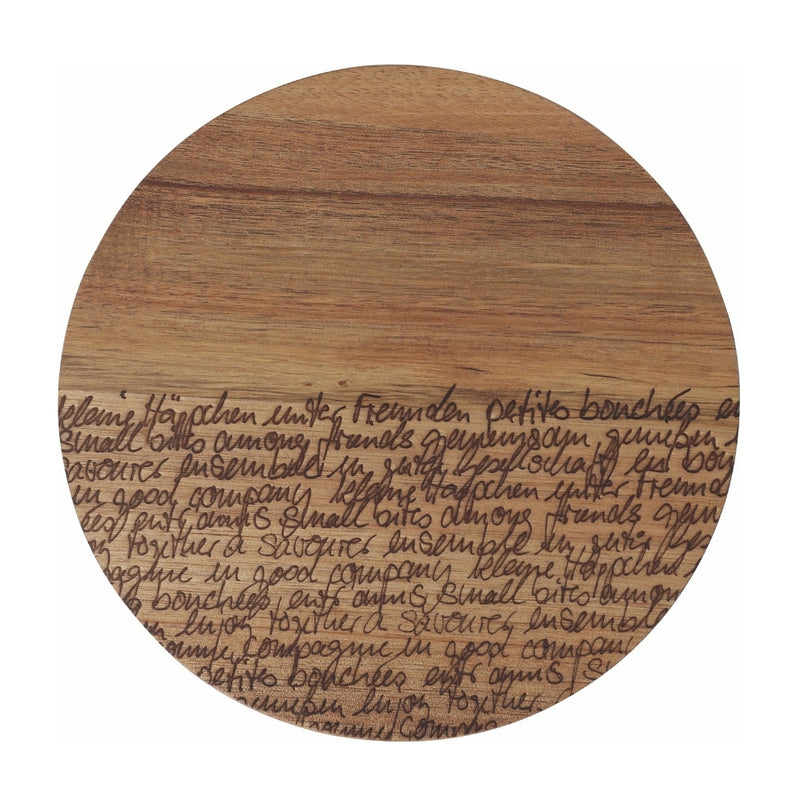 kleine Häppchen unter Freunden petites bouchées en
small bites among friends gemeinsam genießen
savourer ensemble in guter Gesellschaft en bon
in good company kleine Häppchen unter Freund
ées entr amis small bites among friends gem
enjoy together à savourer ensemble in guter Gesel
pagnie in good company kleine Häppchen
s bouchées entr amis small bites among
en enjoy together à savourer ensemble
onne compagnie in good company
petites bouchées entr amis s
genießen enjoy together
onne compa